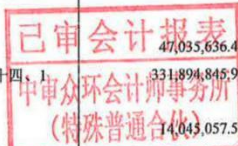 已审会计报表
47,035,636.4
十四、1
331,894,845.9
中审众环会计师事务所
(特殊普通合伙)
14,045,057.5